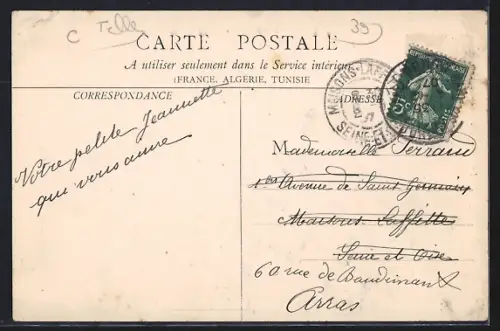 C Talle
39
CARTE POSTALE
A utiliser seulement dans le Service intérieur
(FRANCE, ALGERIE, TUNISIE
CORRESPONDANCE
ADRESSE
MAISONS-LAFF
SEINE-ET-
5c
Votre petite Jeannette
qui vous aime
Mademoiselle Ferrand
Avenue de Saint Germain
Maisons Laffitte
Seine et Oise
60 rue de Baudimont
Arras